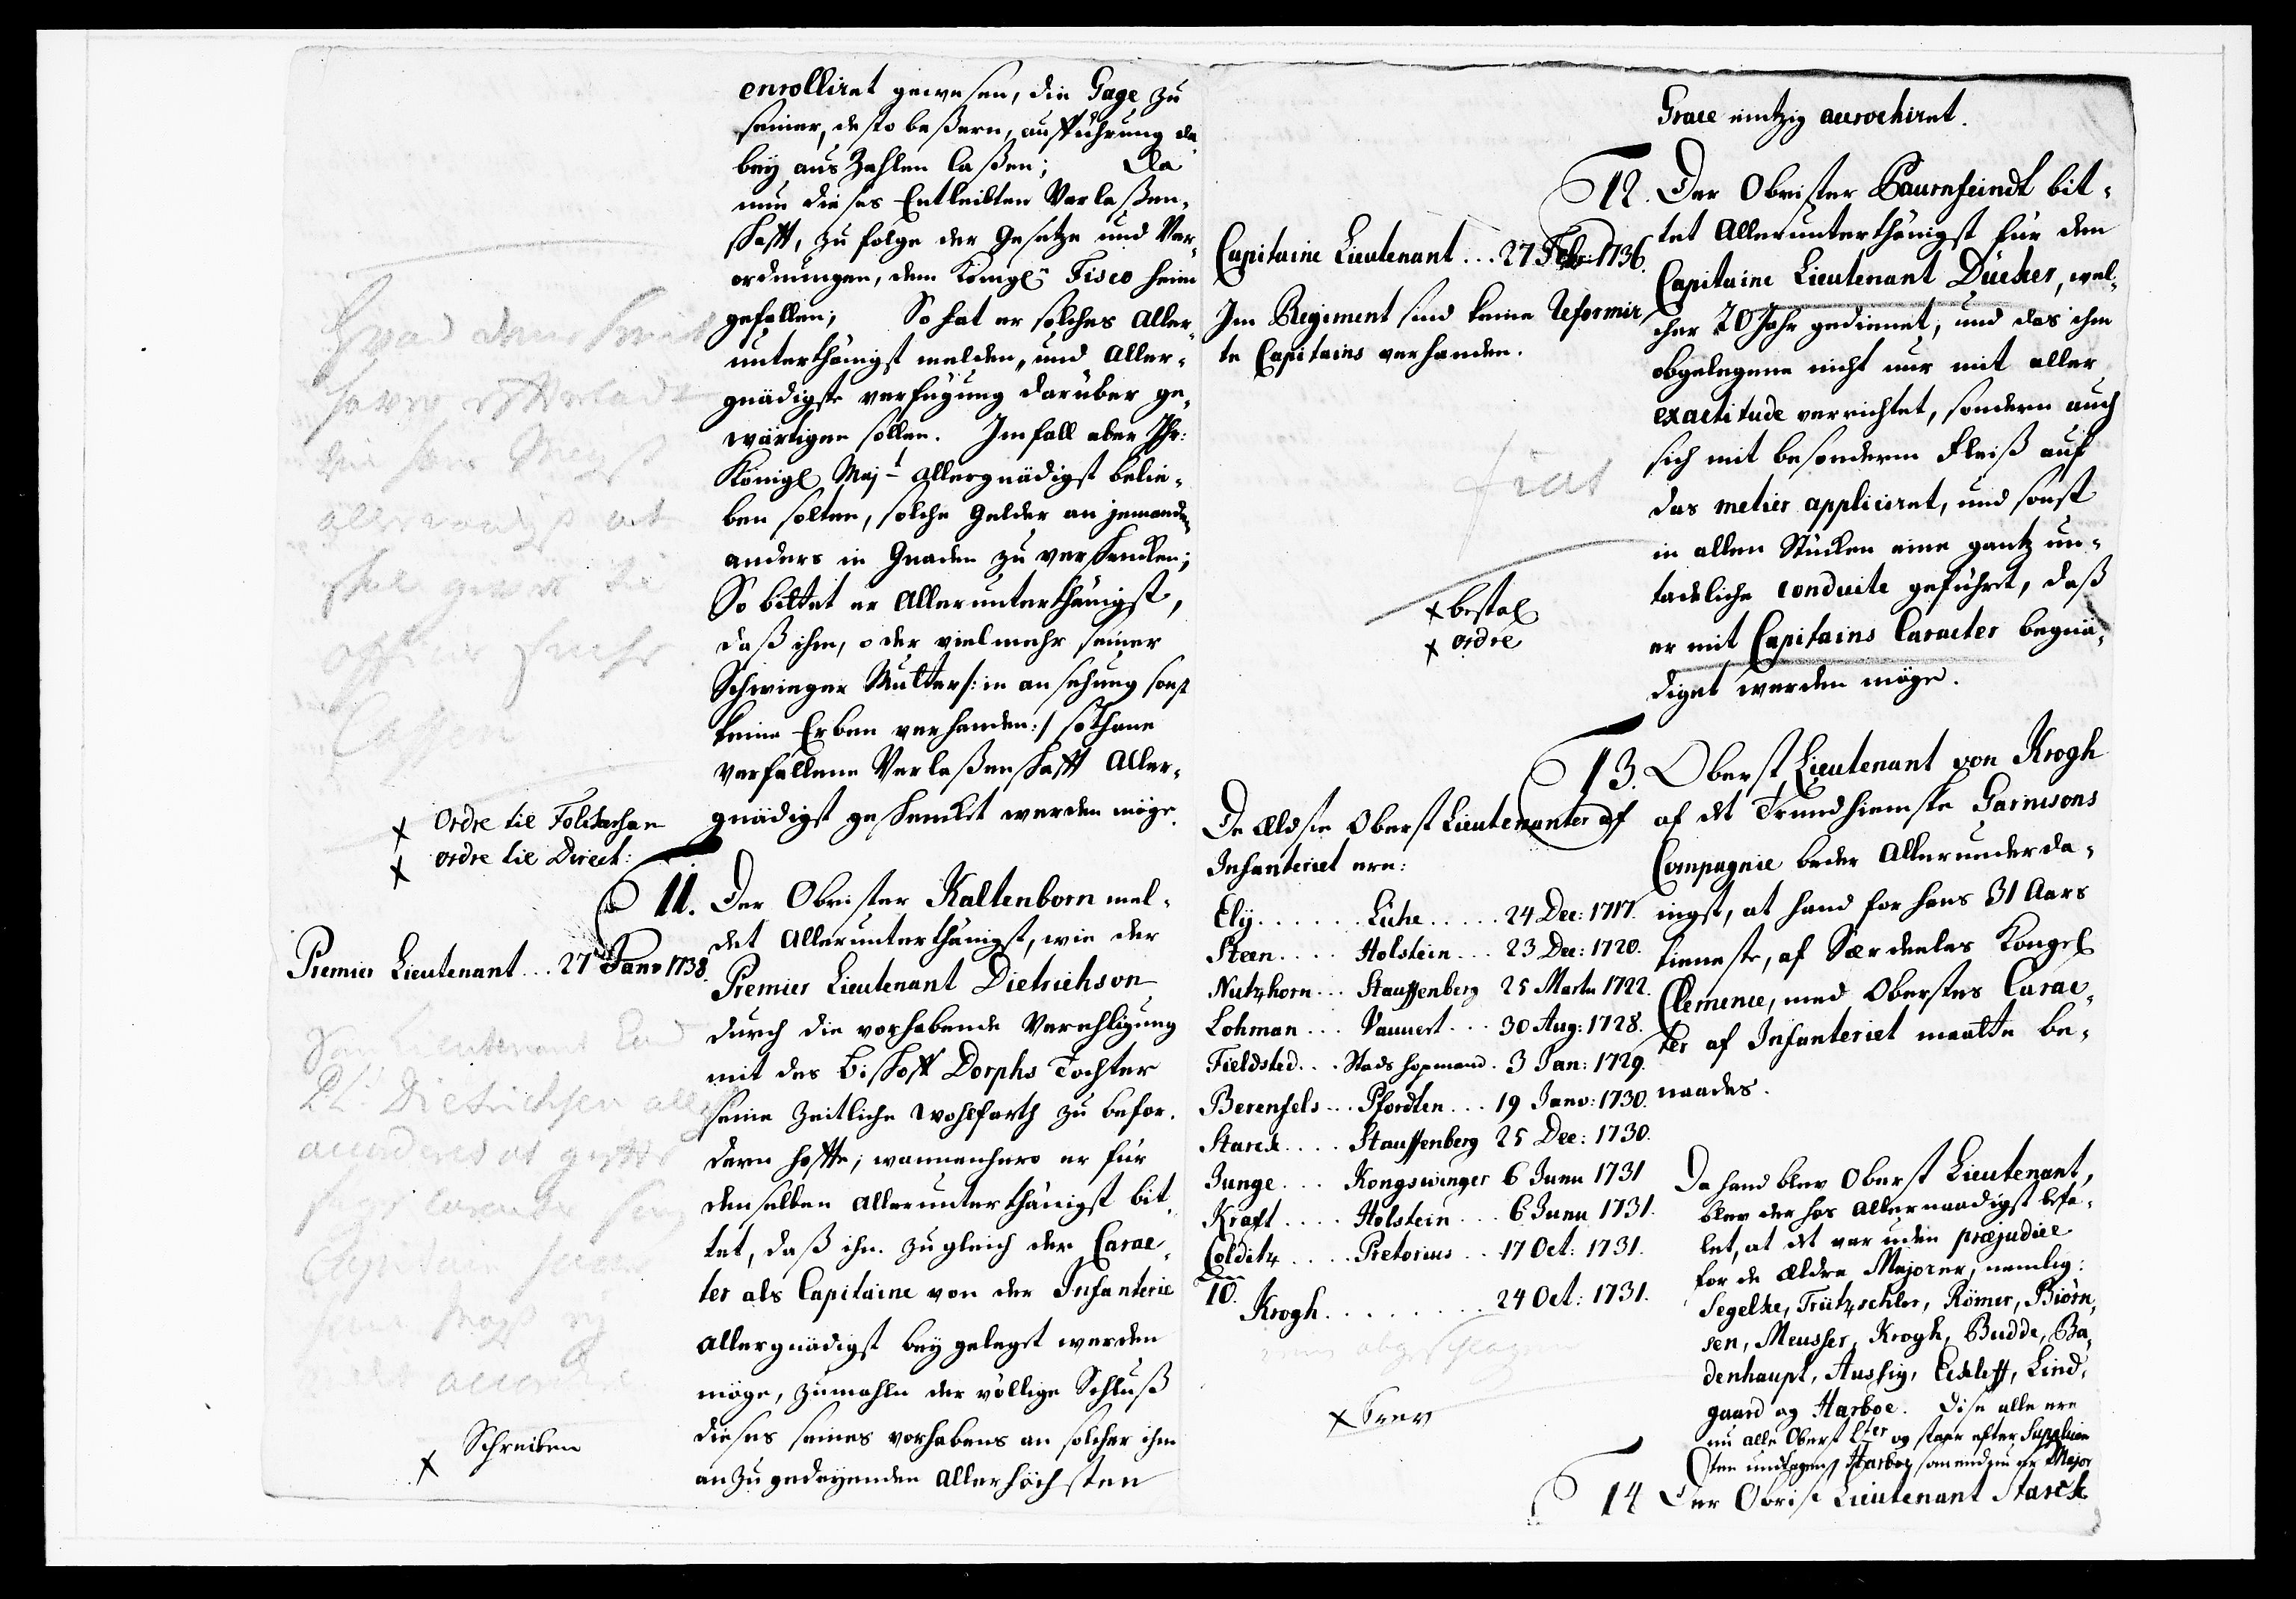 enrolliret gewesen, die Gage zu
seiner, desto beßern, aufführung da
bey aus Zahlen laßen; Da
nun dieses Entleibten Verlaßen-
schafft, zu folge der Gesetze und Ver-
ordnungen, dem Königl. Fisco heim
gefallen; So hat er solches Aller-
unterthänigst melden, und Aller-
gnädigste verfügung darüber ge-
wärtigen sollen. Im fall aber Ihr:
Königl Majt allergnädigst belie-
ben solten, solche Gelder an jemanden
anders in Gnaden zu verschencken;
So bittet er Allerunterthänigst,
daß ihm, oder vielmehr seiner
Schwieger Mutter /: in ansehung sonst
keine Erben verhanden :/ sothane
verfallene Verlaßenschafft Aller-
gnädigst geschenckt werden möge.
Hvad denne
den hans Mayst
allernaadigst
Cassen
x Ordre til
x ordre til Direct:
11. Der Obrister Kaltenborn mel-
det Allerunterthänigst, wie der
Premier Lieutenant Dietrichson
durch die vorhabende Verehligung
mit des Bischoff Dorphs Tochter
seine Zeitliche wohlfarth zu befor-
dern hoffte; wannenhero er für
denselben Allerunterthänigst bit-
tet, daß ihn zugleich der Carac-
ter als Capitaine von der Infanterie
allergnädigst beygelegt werden
möge, zumahln der völlige Schluß
dieses seines vorhabens an solcher ihm
anzugedeyenden Allerhöchsten
Premier Lieutenant ... 27 Janv 1738.
Lieutenant
Dietrichsen
Capitain
x Schreiben
Grace eintzig accrochiret.
12. Der Obrister Paurnfeindt bit-
tet Allerunterthänigst für den
Capitaine Lieutenant Dücker, wel-
cher 20 Jahr gedienet, und das ihm
obgelegene nicht nur mit aller
exactitude verrichtet, sondern auch
sich mit besonderm Fleiß auf
das metier appliciret, und sonst
in allen Stücken eine gantz un-
tadeliche conduite geführet, daß
er mit Capitains Caracter begnä-
diget werden möge.
Capitaine Lieutenant ... 27 Febr: 1736.
Im Regiment sind keine Reformir-
te Capitains verhanden.
fiat
x bestal
x ordre
13. Oberst Lieutenant von Krogh
af det Trundhiemske Garnisons
Compagnie beder Allerunderda-
nigst, at hand for hans 31 Aars
tieneste, af Særdeeles Kongel
Clemence, med Oberstes Carac-
ter af Infanteriet maatte be-
naades.
De Ældste Oberst Lieutenanter af
Infanteriet ere:
Ely ...... Lühe ..... 24 Dec: 1717.
Steen .... Holstein ... 23 Dec: 1720.
Nutzhorn ... Stauffenberg 25 Marti 1722.
Lohman ... Vauvert ... 30 Aug: 1728.
Fieldsted ... Stads hopmand . 3 Jan: 1729.
Berenfels ... Pfordten ... 19 Janv: 1730.
Starck .... Stauffenberg 25 Dec: 1730.
Junge ... Kongswinger 6 Junii 1731
Kraft .... Holstein ... 6 Junii 1731.
Colditz .... Pretorius .. 17 Oct: 1731.
10.
Krogh ......... 24 Oct: 1731.
abgeschlagen
x brev
Da hand blev Oberst Lieutenant,
blev der hos Allernaadigst befa-
let, at det var uden præjudice
for de Ældre Majorer, nemlig:
Segelke, Trützschler, Römer, Biörn-
sen, Meusser, Krogh, Budde, Ba-
denhaupt, Aussig, Eickleff, Lind-
gaard og Harboe. Disse alle ere
nu alle Oberst Lter og staar efter Supplican
ten undtagen Harboe, som endnu er Major
14 Der Obrist Lieutenant Starck